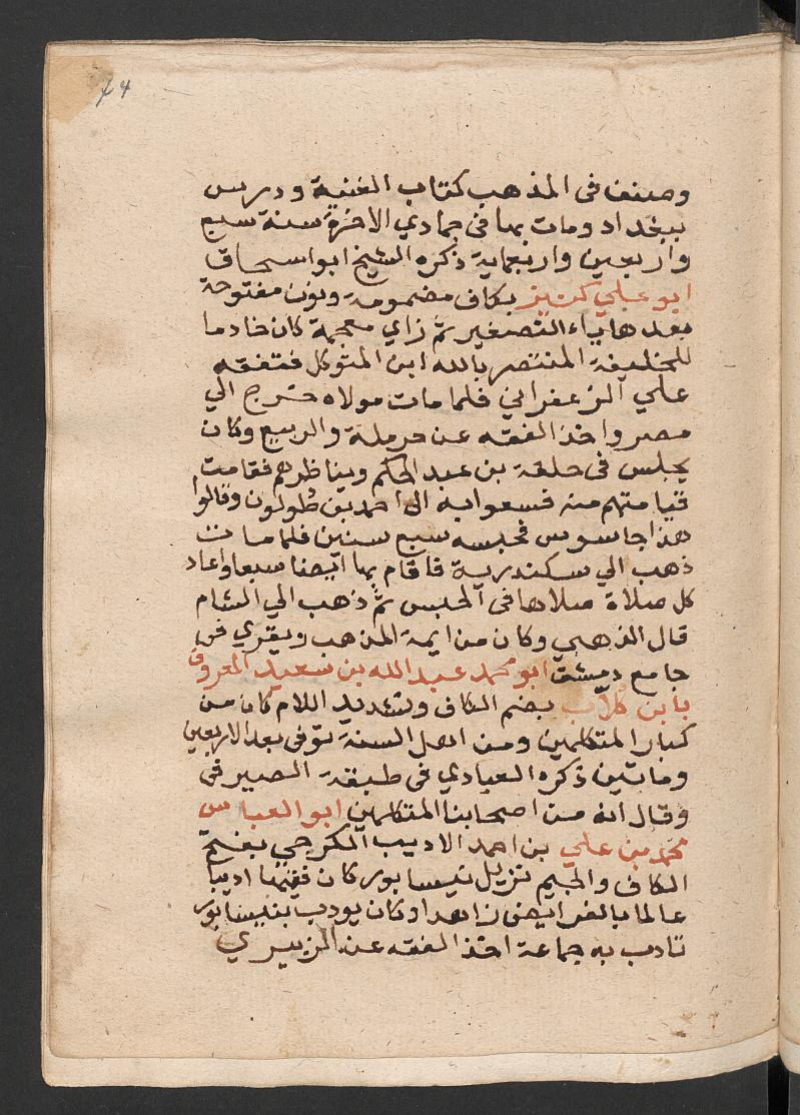 74
وصنف فى المذهب كتاب الغنية ودرس
ببغداد ومات بها فى جمادي الاخرة سنة سبع
واربعين واربعماية ذكره الشيخ ابو اسحاق
ابو علي كنيز بكاف مضمومة ونون مفتوحة
بعدها ياء التصغير ثم زاي معجمة كان خادما
للخليفة المنتصر بالله ابن المتوكل فتفقه
علي الزعفراني فلما مات مولاه خرج الي
مصر واخذ الفقه عن حرملة والربيع وكان
يجلس فى حلقة بن عبد الحكم ويناظرهم فقامت
قيامتهم منه فسعوا به الى احمد بن طولون وقالوا
هذا جاسوس فحبسه سبع سنين فلما مات
ذهب الي سكندرية فاقام بها ايضا سبعا واعاد
كل صلاة صلاها فى الحبس ثم ذهب الي الشام
قال الذهبي وكان من ايمة المذهب ويقري فى
جامع دمشق ابو محمد عبد الله بن سعيد المعروف
بابن كلاب بضم الكاف وتشديد اللام كان من
كبار المتكلمين ومن اهل السنة توفى بعد الاربعين
وماتين ذكره العبادي فى طبقة الصيرفى
وقال انه من اصحابنا المتكلمين ابو العباس
محمد بن علي بن احمد الاديب الكرجي بفتح
الكاف والجيم نزيل نيسابور كان فقيها اديبا
عالما بالفرايض زاهدا وكان يودب بنيسابور
تادب به جماعة اخذ الفقه عن الزبيري